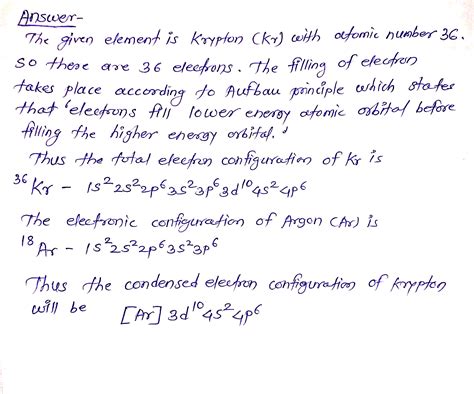 Answer-
The given element is Krypton (Kr) with atomic number 36.
So there are 36 electrons. The filling of electron
takes place according to Aufbau principle which states
that 'electrons fill lower energy atomic orbital before
filling the higher energy orbital.'
Thus the total electron configuration of Kr is
³⁶Kr - 1s²2s²2p⁶3s²3p⁶3d¹⁰4s²4p⁶
The electronic configuration of Argon (Ar) is
¹⁸Ar - 1s²2s²2p⁶3s²3p⁶
Thus the condensed electron configuration of krypton
will be [Ar] 3d¹⁰4s²4p⁶